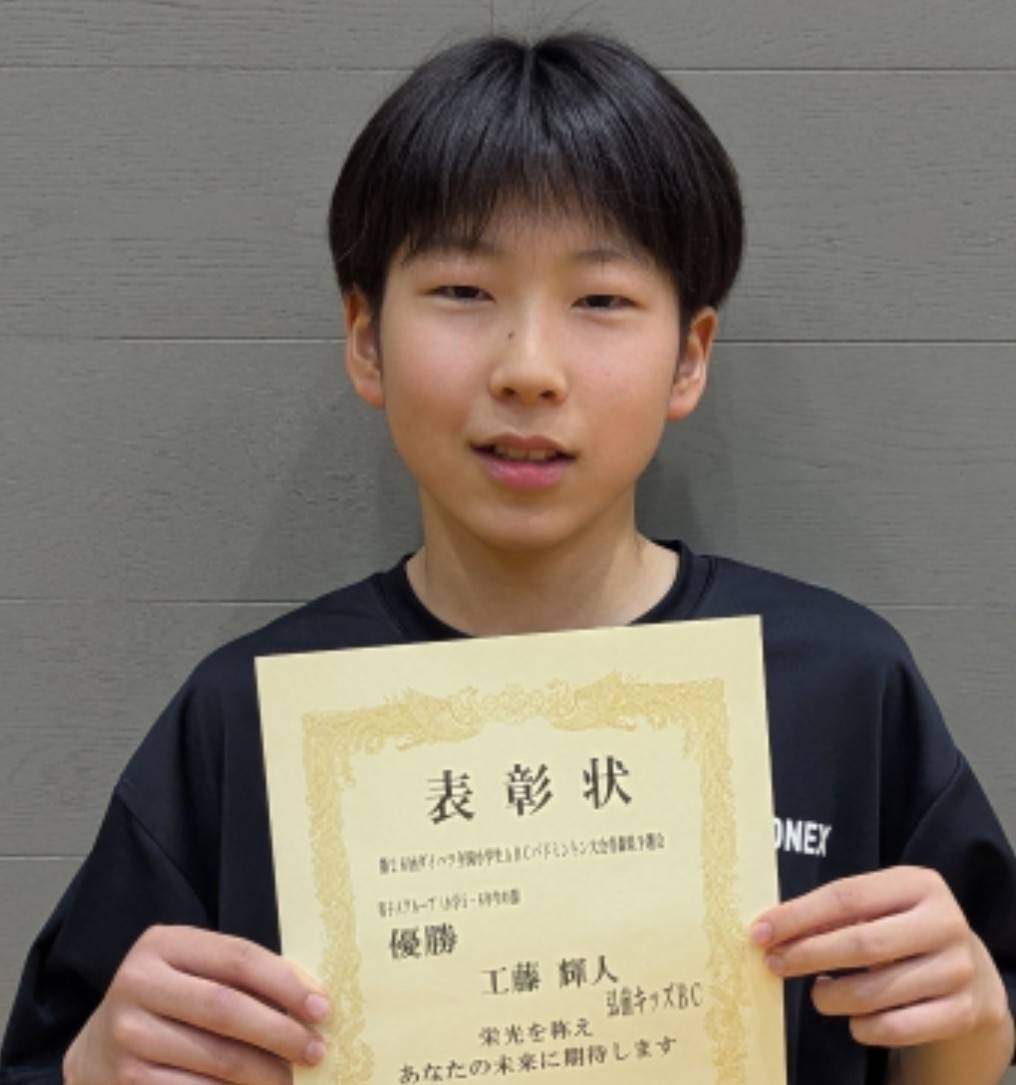 表彰状
第26回ダイハツ全国小学生ABCバドミントン大会青森県予選会
男子Aグループ(小学5・6年生の部)
優勝
工藤 輝人
弘前キッズBC
栄光を称え
あなたの未来に期待します
ONEX